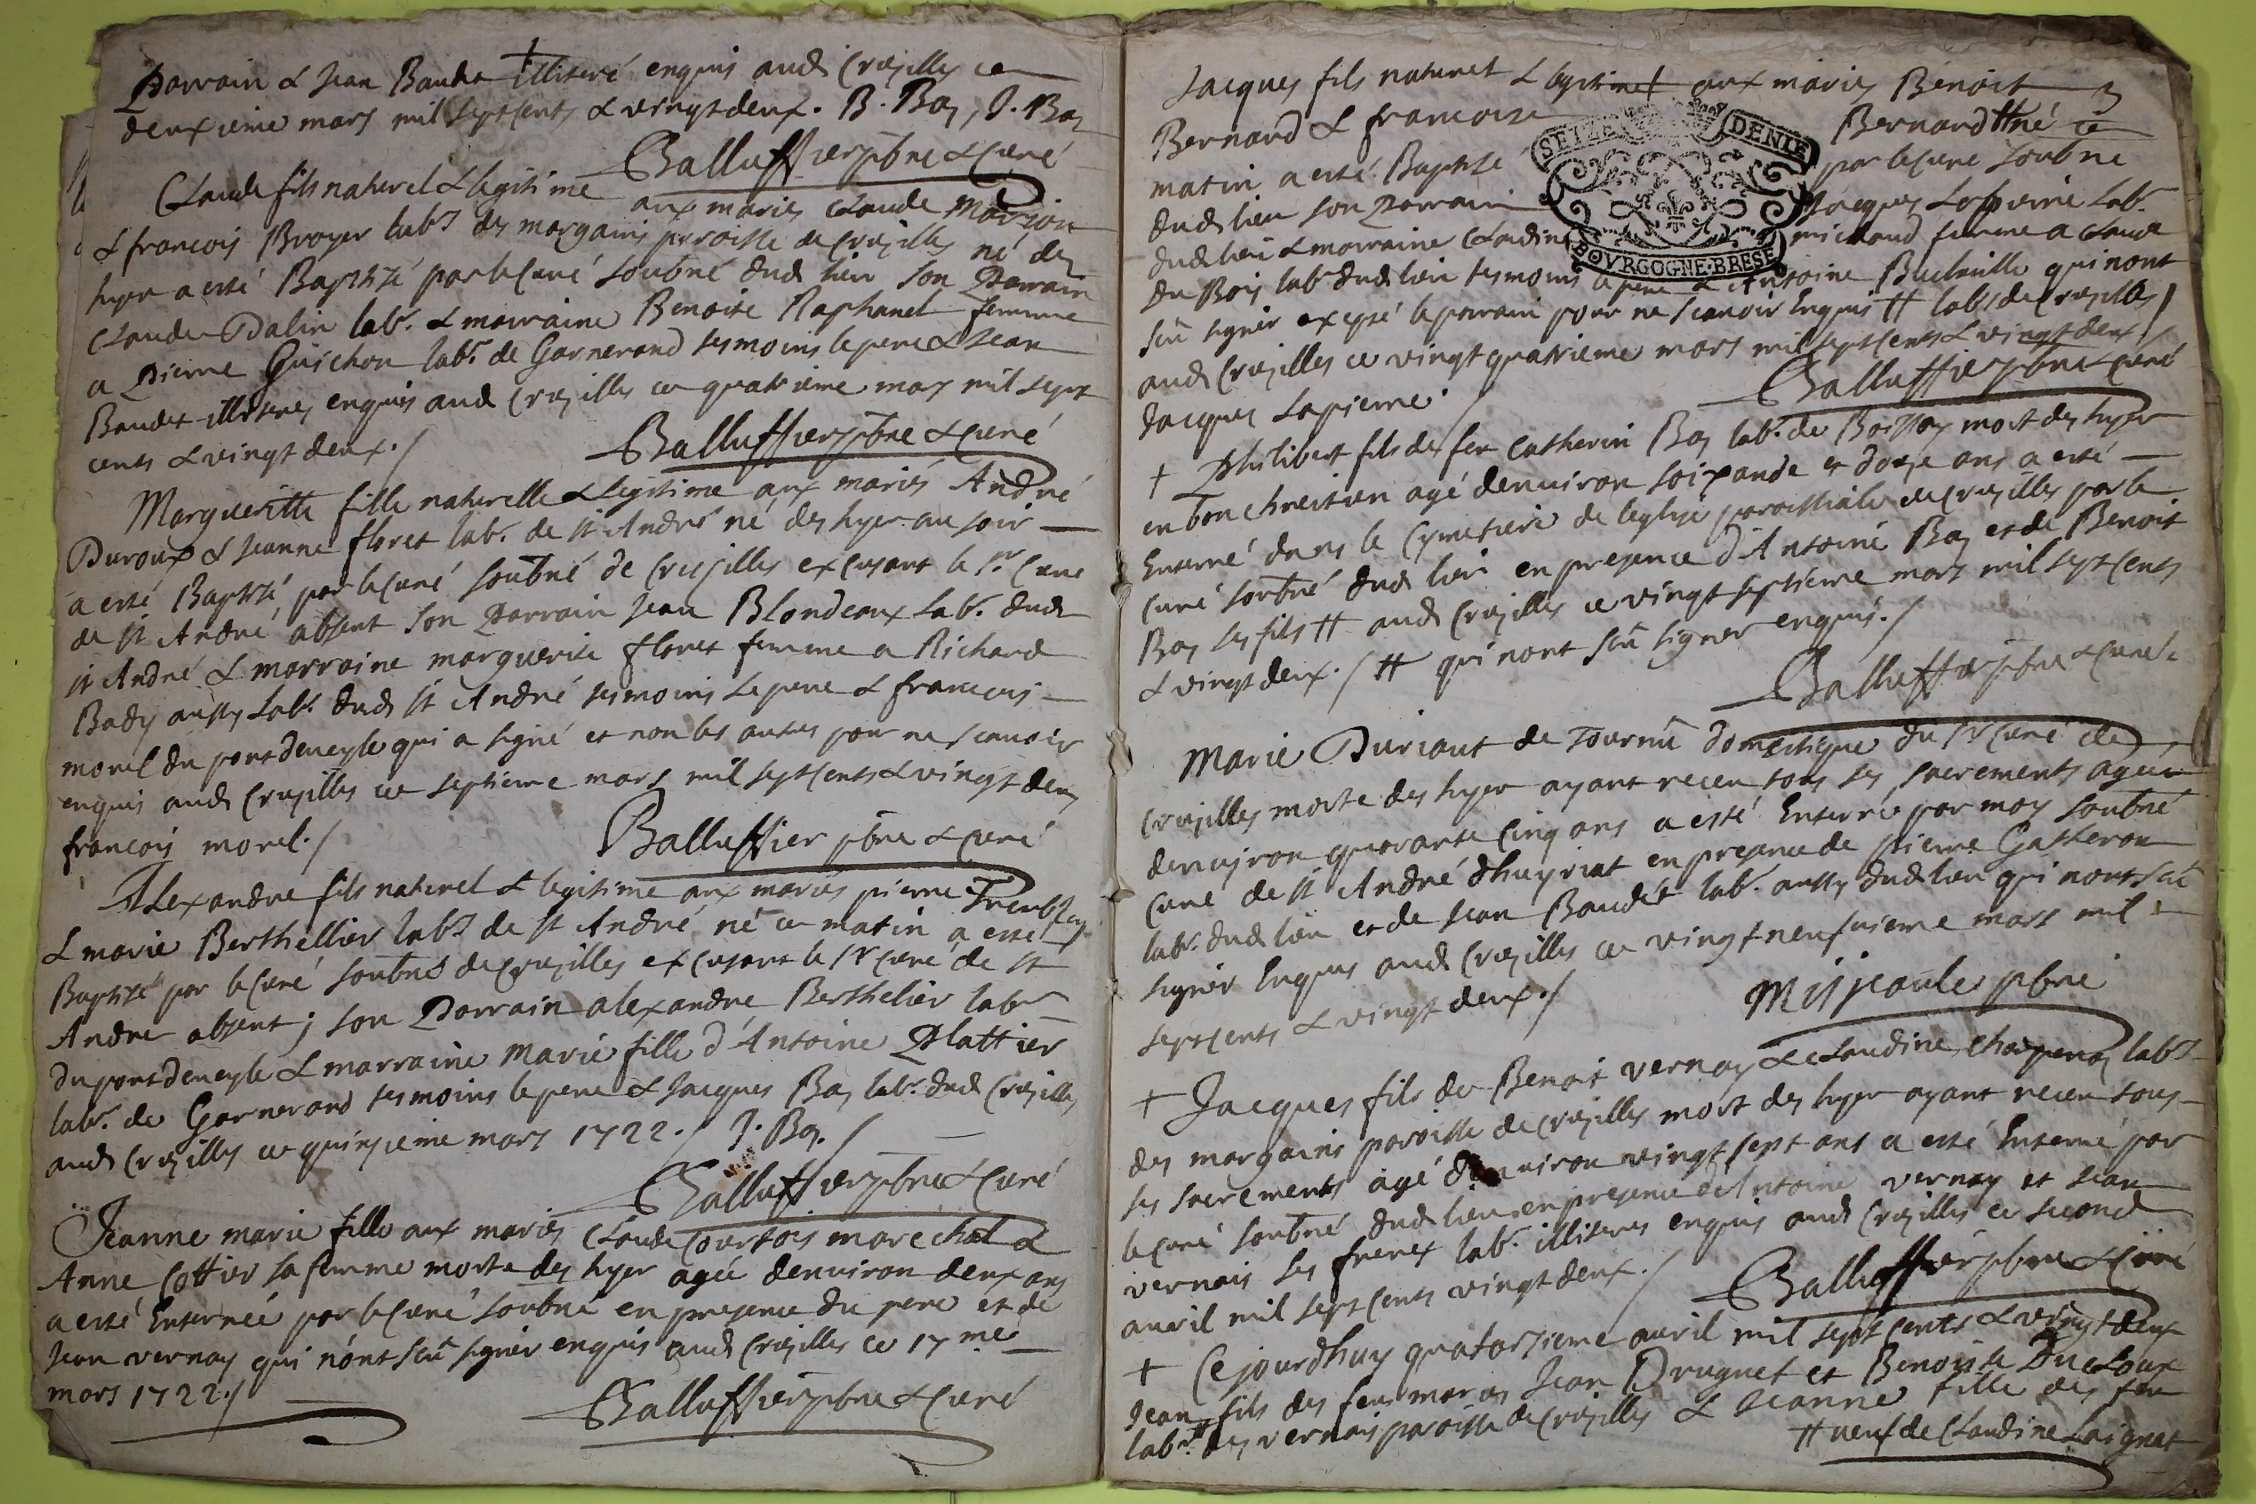 Parrain & Jean Baudet illiteré enquis aud Crusilles ce
deuxieme mars mil sept cents & vingt deux. B. Bay, J. Bay
Balluffier pbre & curé
Claude fils naturel & legitime aux mariés Claude Marion
& francois Broyer labrs des margains paroisse de Crusilles né des
hyer a esté Baptisé par le Curé soubné dud lieu son Parrain
Claude Dalin labr. & marraine Benoite Raphanel femme
a Pierre Guichon labr. de Garnerand tesmoins le pere & Jean
Baudet illiteres enquis aud Crusilles ce quatrieme mars mil sept
cents & vingt deux./
Balluffier pbre & curé
Margueritte fille naturelle & legitime aux mariés André
Duroux & Jeanne floret labr. de st André né des hyer au soir
a esté Baptisé par le Curé soubné de Crusilles excusant le sr. Curé
de st André absent son Parrain Jean Blondeaux labr. dud
st André & marraine marguerite floret femme a Richard
Bady aussy labr. dud st André tesmoins le pere & francois
morel du pont deveyle qui a signé et non les autres pour ne scavoir
enquis aud Crusilles ce septieme mars mil sept cents & vingt deux
francois morel./
Balluffier pbre & curé
Alexandre fils naturel & legitime aux mariés pierre
& marie Berthellier labrs de st André né ce matin a esté
Baptisé par le Curé soubné de Crusilles excusant le sr curé de st
André absent; son Parrain alexandre Berthelier labr
du pont deveyle & marraine Marie fille d'Antoine Plattier
labr. de Garnerand tesmoins le pere & Jacques Bay labr. dud Crusilles
aud Crusilles ce quinzieme mars 1722./ J. Bay./
Balluffier pbre & curé
Jeanne marie fille aux mariés Claude Courtois marechal &
Anne Cottier sa femme morte des hyer agée denuiron deux ans
a esté Enterreé par le Curé soubné en presence du pere et de
Jean vernay qui n'ont scû signer enquis aud Crusilles ce 17me
mars 1722./
Balluffier pbre & curé
Jacques fils naturel & legitime aux mariés Benoit
3
Bernard & francoise Bernard né ce
matin a esté Baptisé par le Curé soubné
dud lieu son Parrain Jacques Lapierre labr.
dud lieu & marraine Claudine michaud femme a Claude
du Bois labr dud lieu tesmoins le pere & Antoine qui nont
scû signer excepté le parrain pour ne scavoir Enquis # labrs de Crusilles
aud Crusilles ce vingt quatrieme mars mil sept cents & vingt deux/
Jacques Lapierre./
Balluffier pbre & curé
SEIZE DENIE
BOVRGOGNE·BRESE
+ Philibert fils de feu Catherin Bay labr. de Boissey mort des hyer
en bon chrestien agé denuiron soixante et douze ans a esté
Enterré dans le Cymetiere de leglise paroissiale de Crusilles par le
Curé soubné dud lieu en presence d'Antoine Bay et de Benoit
Bay ses fils # aud Crusilles ce vingt septieme mars mil sept cents
& vingt deux./ # qui nont scû signer enquis./
Balluffier pbre & curé
Marie Duriaut de Tournû domestique du sr Curé de
Crusilles morte des hyer ayant receu tous ses sacrements agée
denuiron quarante cinq ans a esté Enterrée par moy soubné
Curé de st André dhuyriat en presence de pierre Gatheron
labr. dud lieu et de Jean Baudet labr. aussy dud lieu qui nont scû
signer Enquis aud Crusilles ce vingt neufuieme mars mil
sept cents & vingt deux./
pbre
+ Jacques fils de Benoit vernay & Claudine labrs
des margains paroisse de Crusilles mort des hyer ayant receu tous
ses sacrements agé denuiron vingt sept ans a esté Enterré par
le Curé soubné dud lieu en presence de Antoine vernay et Jean
vernais ses freres labr. illiteres enquis aud Crusilles ce second
auril mil sept cents vingt deux./
Balluffier pbre & Curé
+ Cejourdhuy quatorzieme auril mil sept cents & vingt deux
Jean fils des feus mariés Jean Druguet et Benoiste Ducloux
labrs des vernais paroisse de Crusilles & Jeanne fille des feu
# veuf de Claudine Laignet